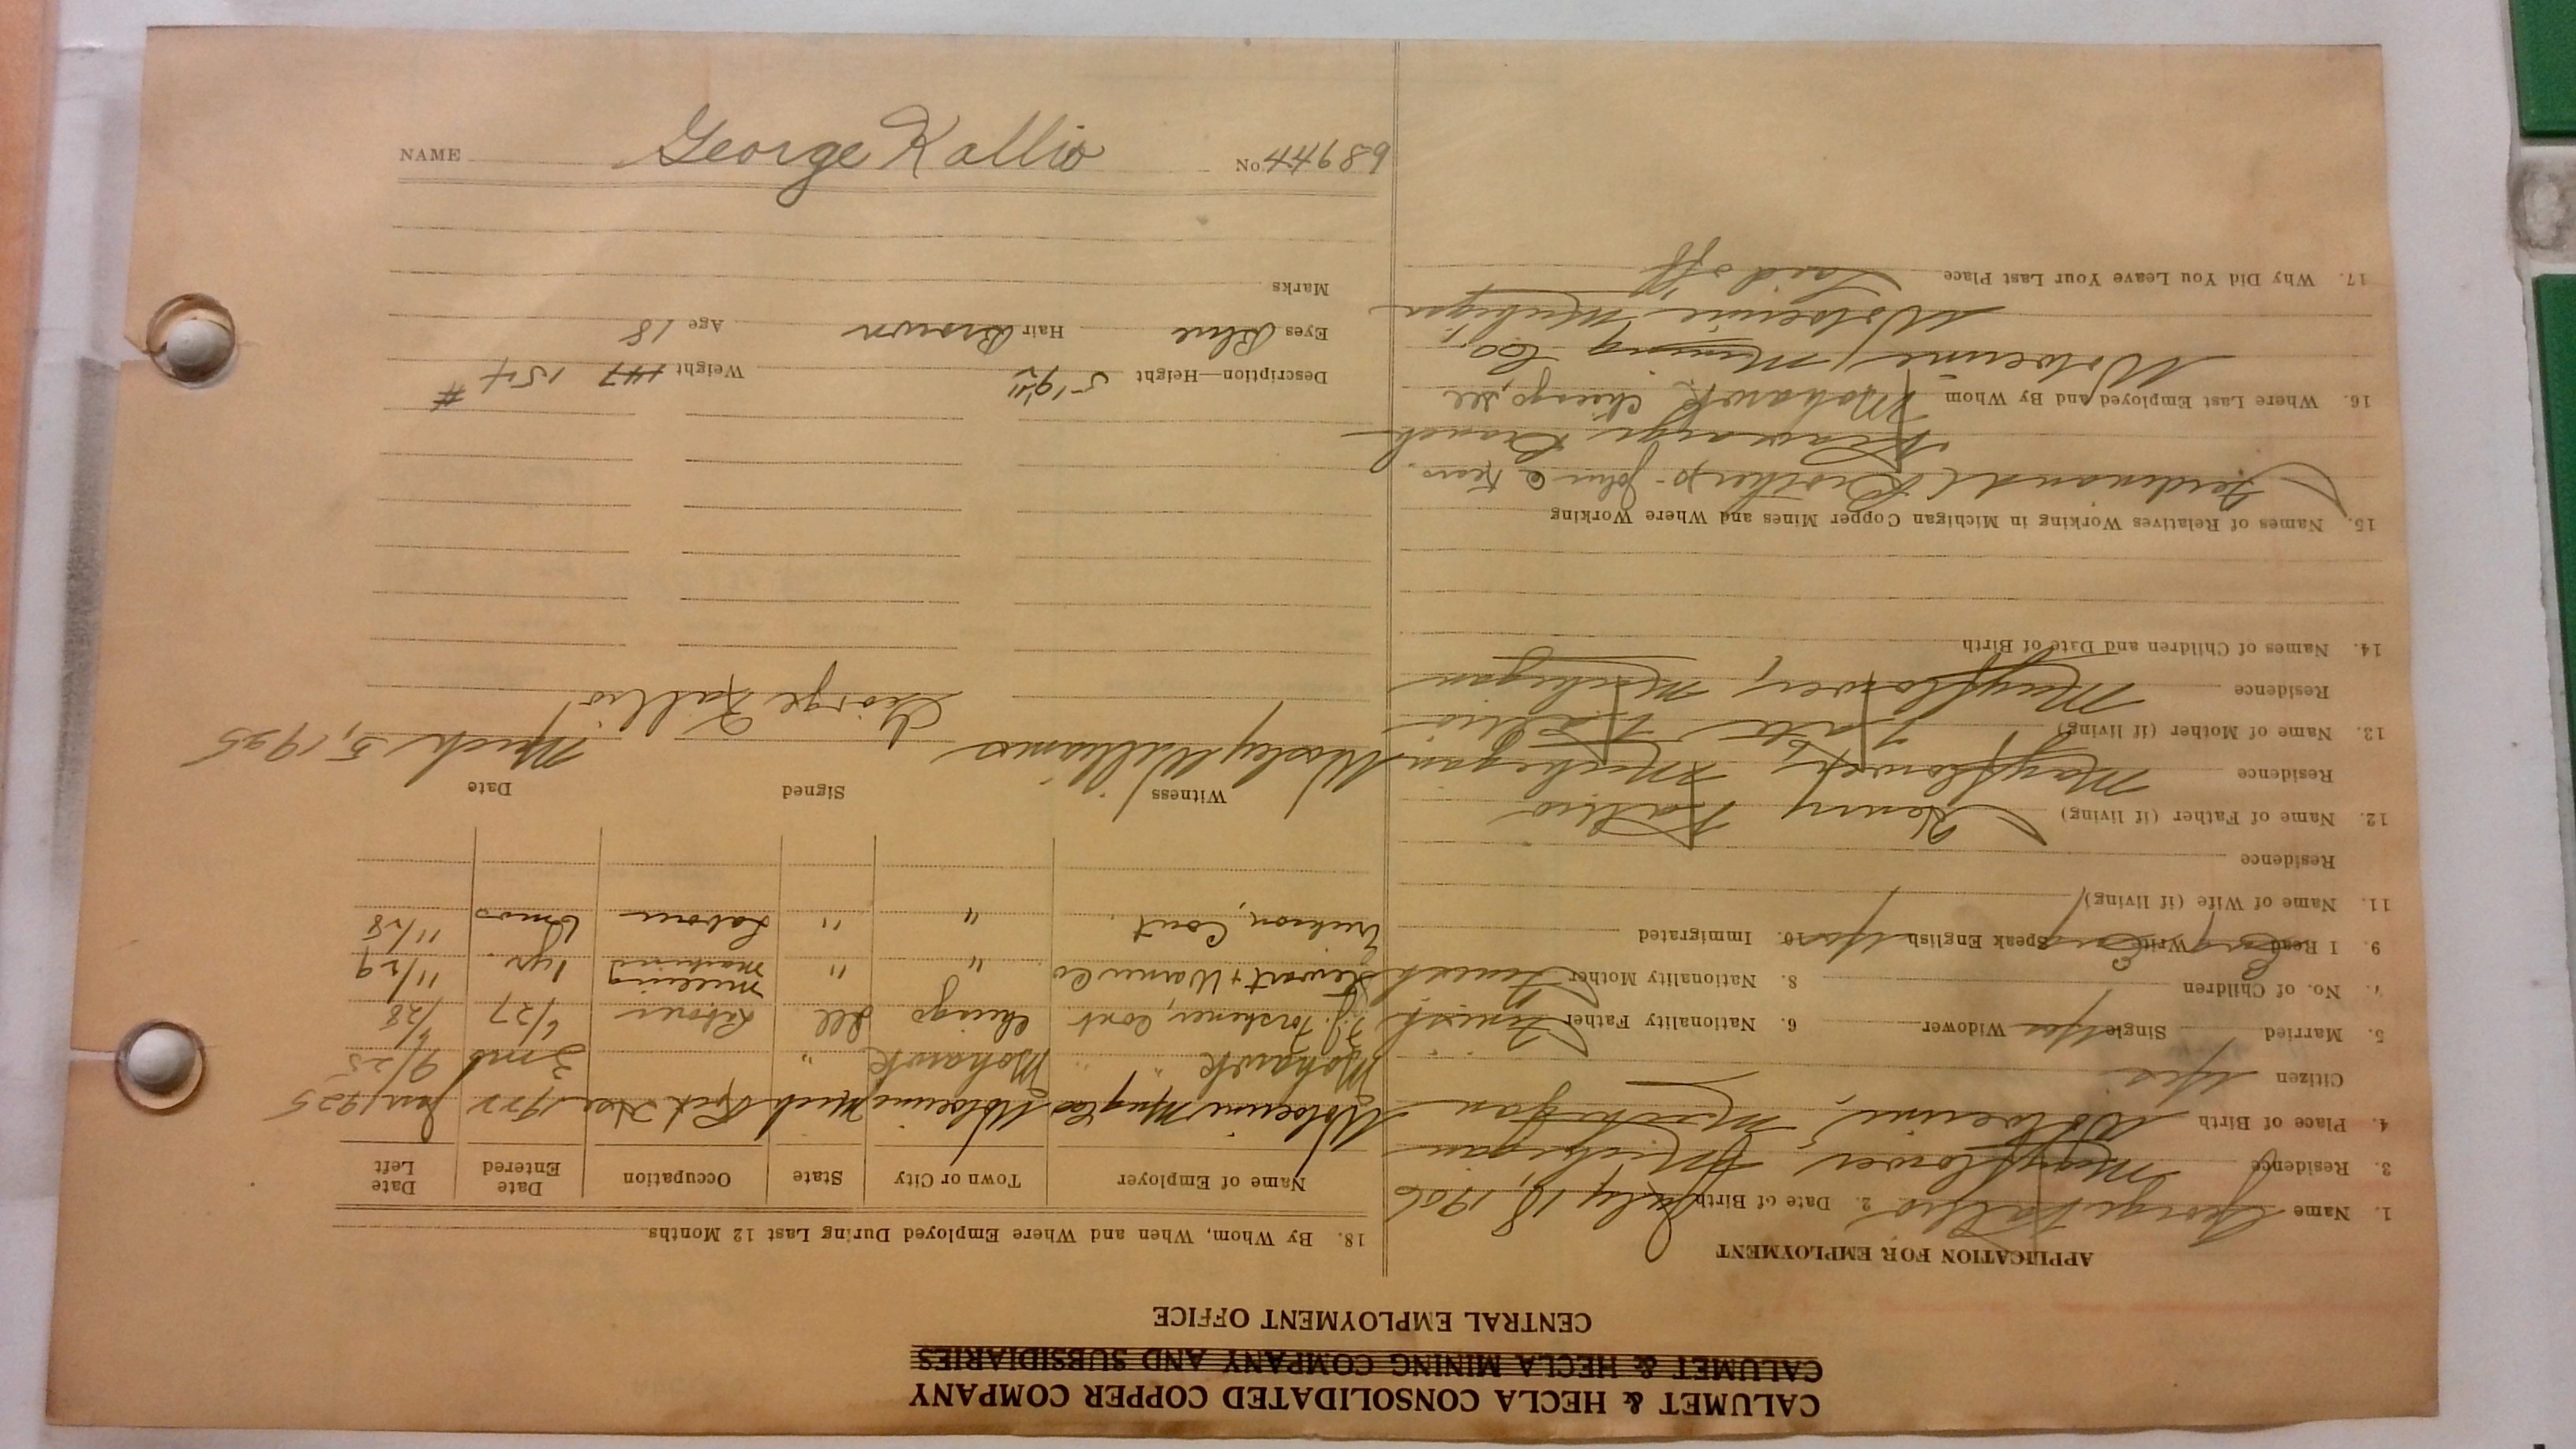 CALUMET & HECLA CONSOLIDATED COPPER COMPANY
CALUMET & HECLA MINING COMPANY AND SUBSIDIARIES
CENTRAL EMPLOYMENT OFFICE
APPLICATION FOR EMPLOYMENT
1. Name George Kallio 2. Date of Birth July 18, 1906
3. Residence Mayflower, Michigan
4. Place of Birth Wolverine, Michigan
Citizen Yes
5. Married Single Yes Widower 6. Nationality Father Finish
7. No. of Children 8. Nationality Mother Finish
9. I Read Write Speak English Yes 10. Immigrated
11. Name of Wife (if living)
Residence
12. Name of Father (if living) Henry Kallio
Residence Mayflower, Michigan
13. Name of Mother (if living) Kallio
Residence Mayflower, Michigan
14. Names of Children and Date of Birth
15. Names of Relatives Working in Michigan Copper Mines and Where Working
Ferdinand Brothers - John
Kearsarge Branch
16. Where Last Employed and By Whom Mohawk Chicago, Ill
Wolverine, Mining Co,
Wolverine Michigan
17. Why Did You Leave Your Last Place Laid off
18. By Whom, When and Where Employed During Last 12 Months
Name of Employer Town or City State Occupation Date Entered Date Left
Wolverine Mng Co Wolverine Mich Rock Hse 1922 Jan, 1925
Mohawk " " Mohawk " 3 mo 9/25
Cont Chicago Ill Laborer 6/27 6/28
Stewart & Warner Co " " milling machine 1 yr. 11/29
Erickson, Cont. " " Laborer 6 mos 11/28
Witness Signed Date
Wesley Williams George Kallio March 5, 1925
Description—Height 5'9½" Weight 147 154 #
Eyes Blue Hair Brown Age 18
Marks
NAME George Kallio No. 44689